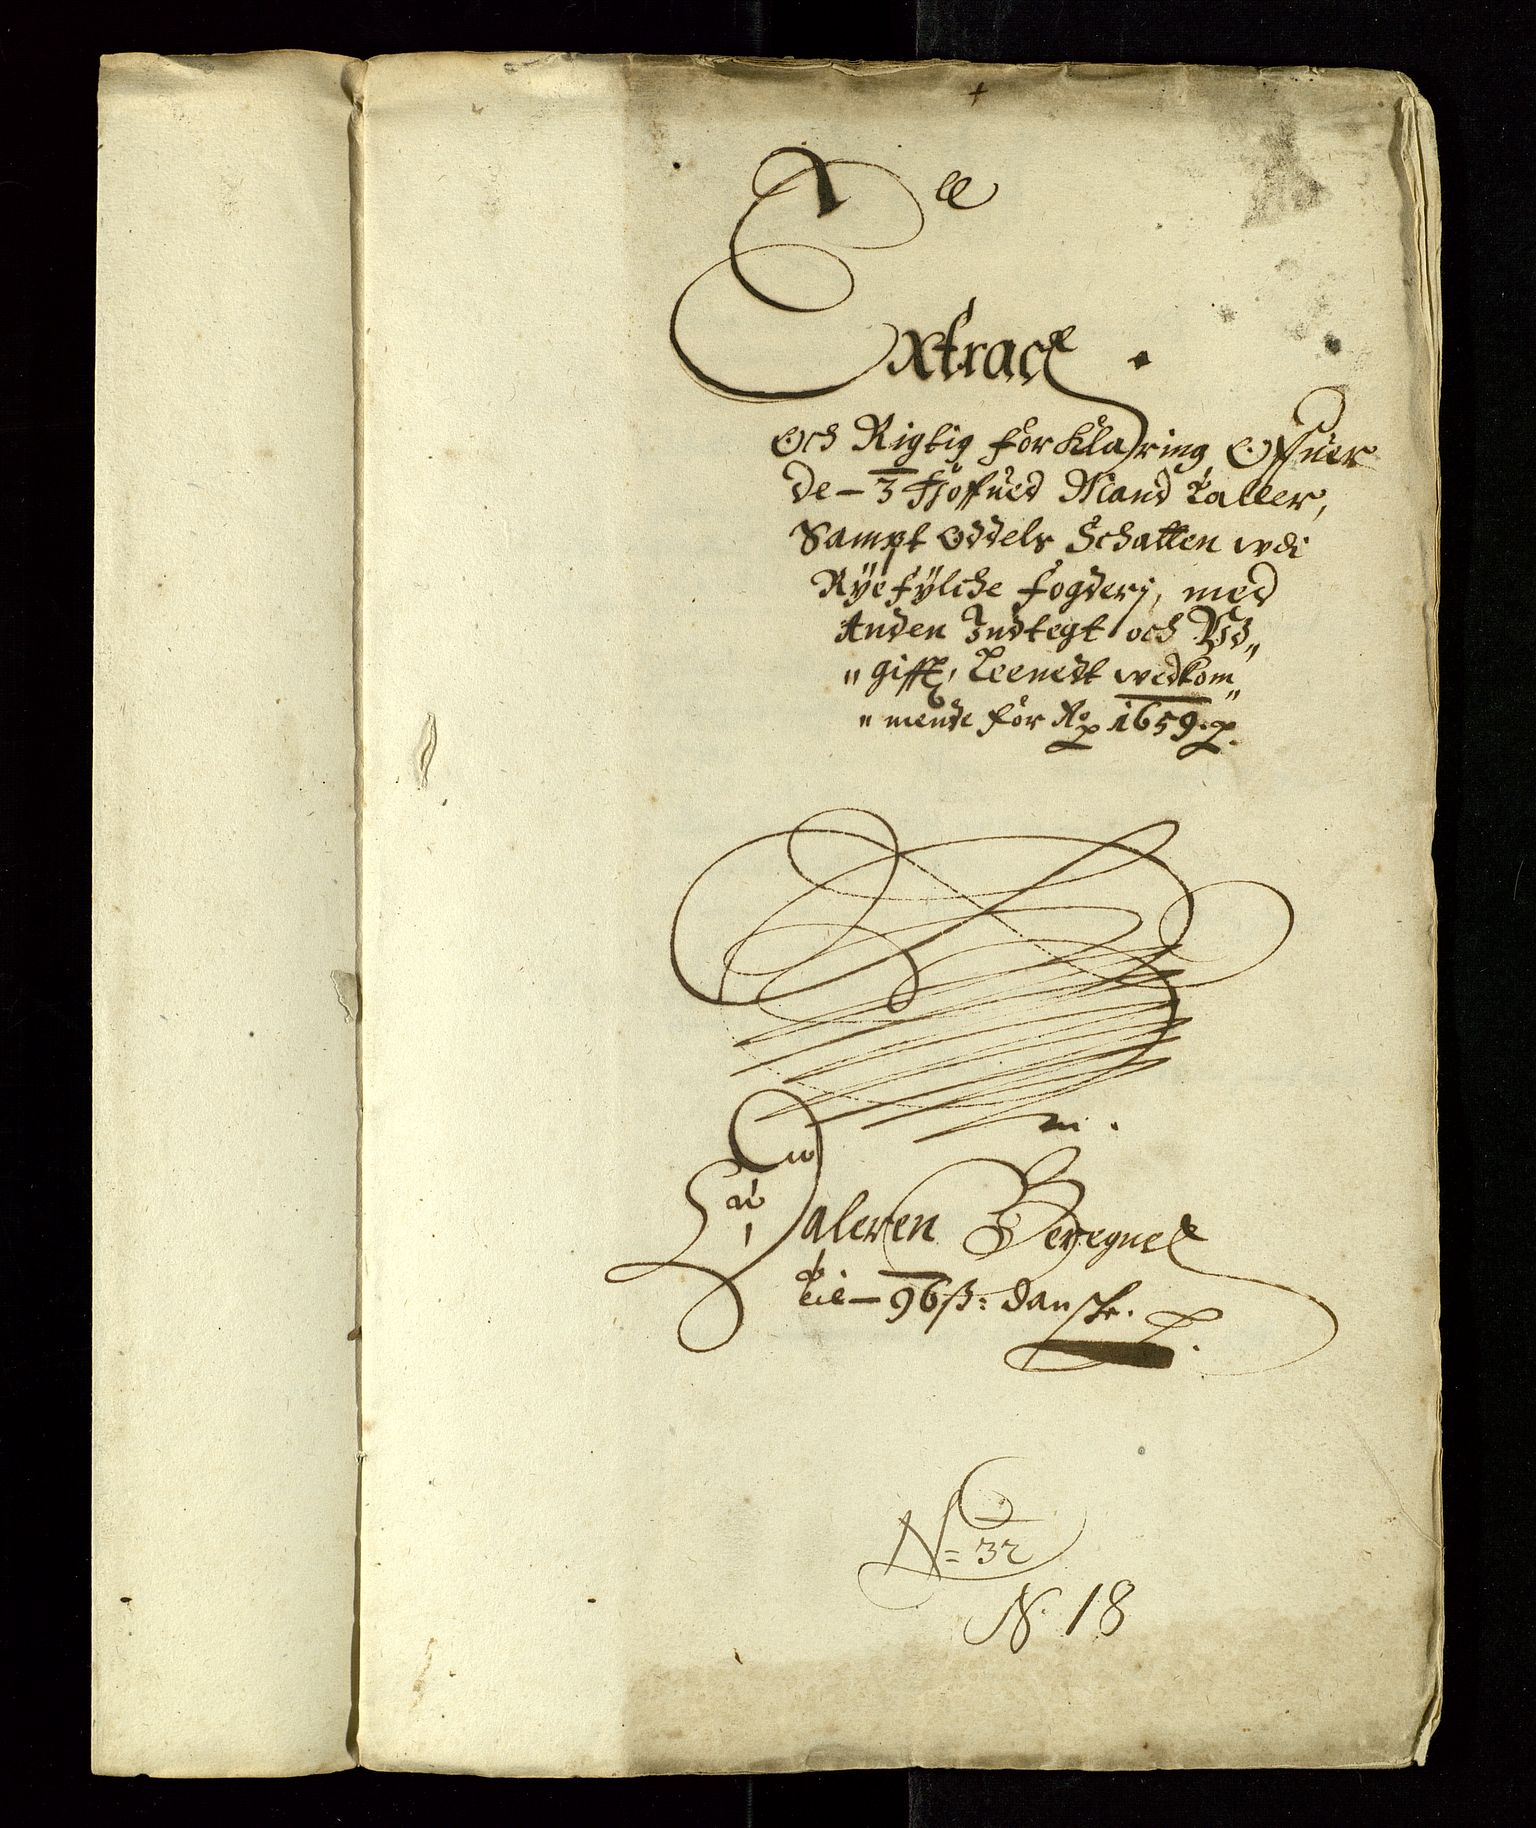 Extract
Och Rigtig forklaring Offuer
de - 3 Hoffued Mand taller,
Sampt Oddels Schatten wdi
Ryefylche fogderi, med
Anden Indtegt och Vd„
„ gifft, Leenedt wedkom„
„ mende for Ao 1659.
Daleren Beregnet
til - 96 ß: danske.
N= 32
N. 18